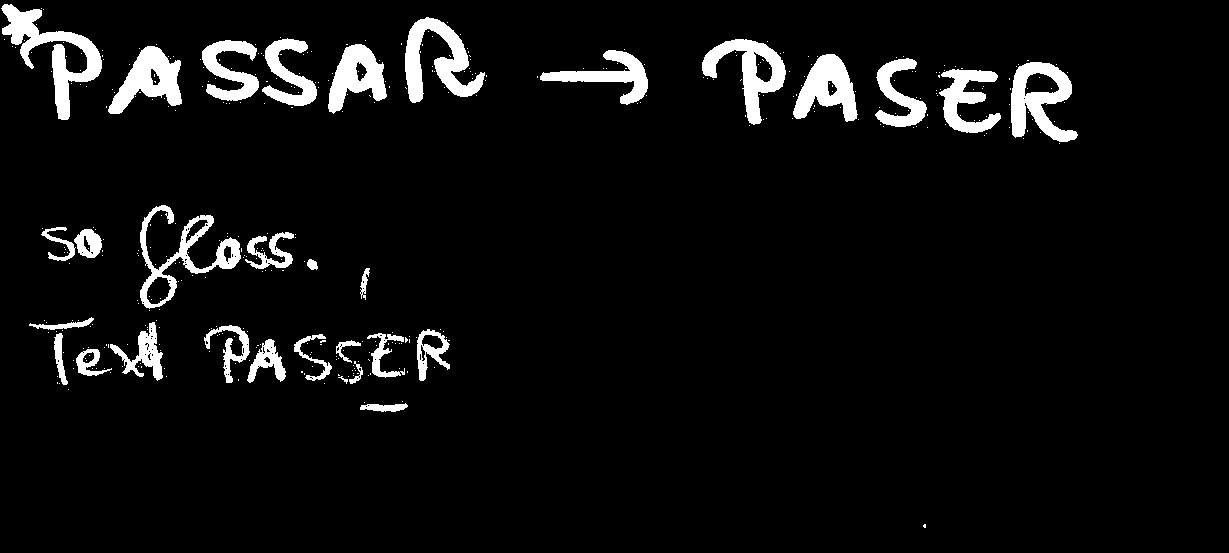 *PASSAR → PASER
so Gloss.,
Text PASSER